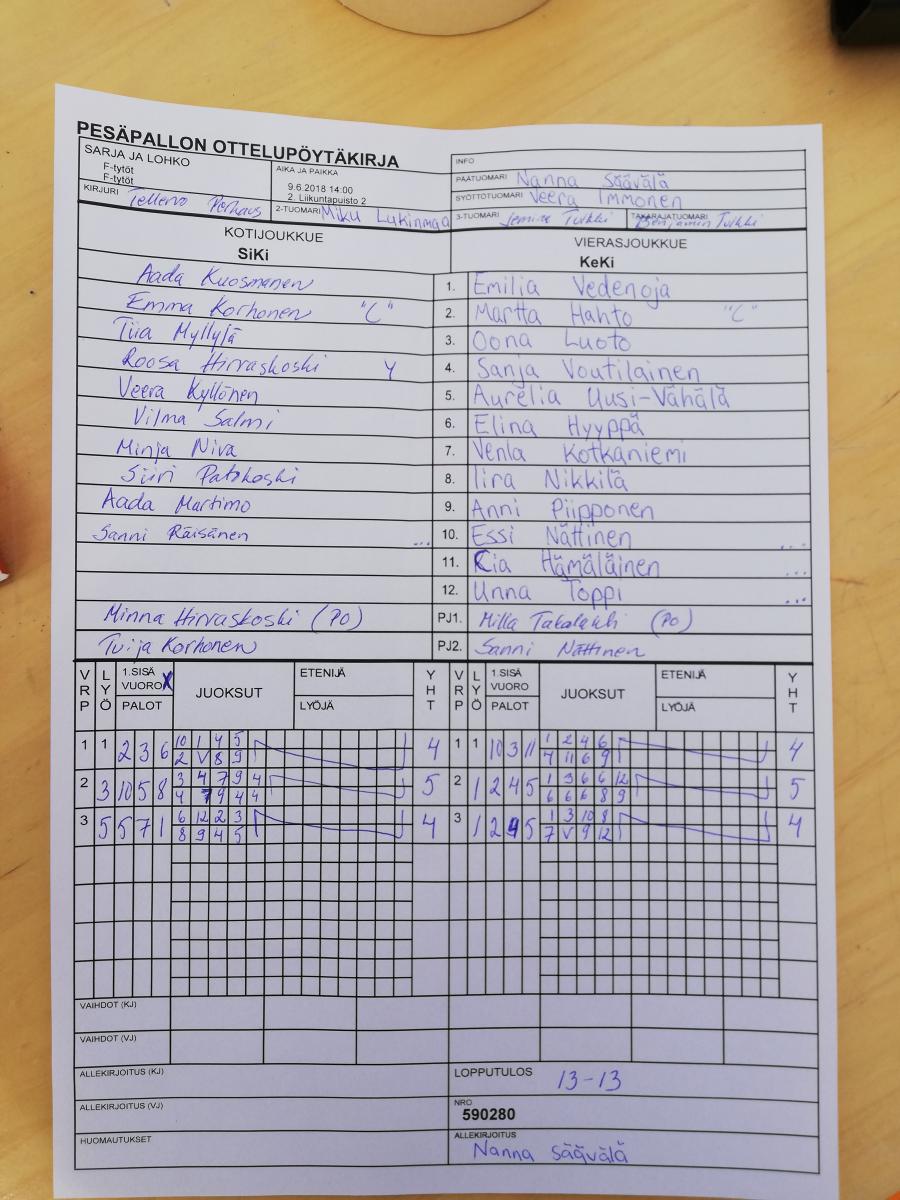 PESÄPALLON OTTELUPÖYTÄKIRJA
SARJA JA LOHKO
F-tytöt
F-tytöt
AIKA JA PAIKKA
9.6.2018 14:00
2. Liikuntapuisto 2
INFO
PÄÄTUOMARI Nanna Säävälä
SYÖTTÖTUOMARI Veera Immonen
KIRJURI Tellervo Perhaus
2-TUOMARI Miku Lukinmaa
3-TUOMARI Jemina Tulkki
TAKARAJATUOMARI Benjamin Tulkki
KOTIJOUKKUE
SiKi
VIERASJOUKKUE
KeKi
Aada Kuosmanen 1. Emilia Vedenoja
Emma Korhonen "C" 2. Martta Hahto "C"
Tiia Myllylä 3. Oona Luoto
Roosa Hirvaskoski Y 4. Sanja Voutilainen
Veera Kyllönen 5. Aurelia Uusi-Vähälä
Vilma Salmi 6. Elina Hyyppä
Minja Niva 7. Venla Kotkaniemi
Siiri Patokoski 8. Iira Nikkilä
Aada Martimo 9. Anni Piipponen
Sanni Räisänen ... 10. Essi Nättinen ...
11. Cia Hämäläinen ...
12. Unna Toppi ...
Minna Hirvaskoski (PO) PJ1. Milla (PO)
Tuija Korhonen PJ2. Sanni Nättinen
VRP LYÖ 1.SISÄ VUORO X PALOT JUOKSUT ETENIJÄ LYÖJÄ YHT
VRP LYÖ 1.SISÄ VUORO PALOT JUOKSUT ETENIJÄ LYÖJÄ YHT
1 1 2 3 6 10 1 4 5 4 1 1 10 3 11 1 2 4 6 4
2 V 8 9 4 11 6 9
2 3 10 5 8 3 4 7 9 4 5 2 1 2 4 5 1 3 6 6 12 5
4 7 9 4 4 6 6 6 8 9
3 5 5 7 1 6 12 2 3 4 3 1 2 4 5 1 3 10 8 4
8 9 4 5 7 V 9 12
VAIHDOT (KJ)
VAIHDOT (VJ)
ALLEKIRJOITUS (KJ)
LOPPUTULOS 13-13
ALLEKIRJOITUS (VJ)
NRO
590280
HUOMAUTUKSET
ALLEKIRJOITUS
Nanna Säävälä